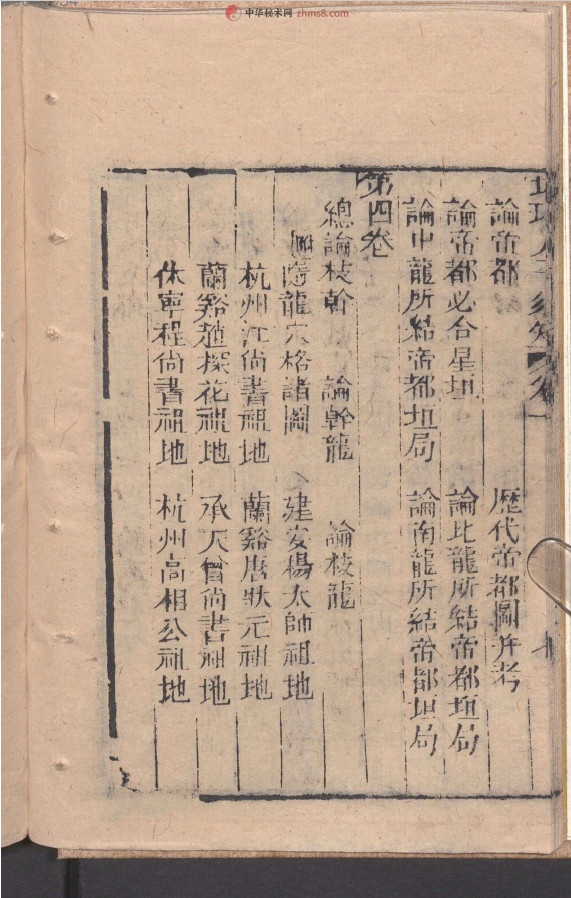 中华秘术网 zhms8.com
論帝都 歷代帝都圖并考
論帝都必合星垣 論北龍所結帝都垣局
論中龍所結帝都垣局 論南龍所結帝都垣局
第四卷
總論枝幹 論幹龍 論枝龍
龍穴格諸圖 建安楊太師祖地
杭州江尚書祖地 蘭谿唐狀元祖地
蘭谿趙探花祖地 承天曾尚書祖地
休寧程尚書祖地 杭州高相公祖地